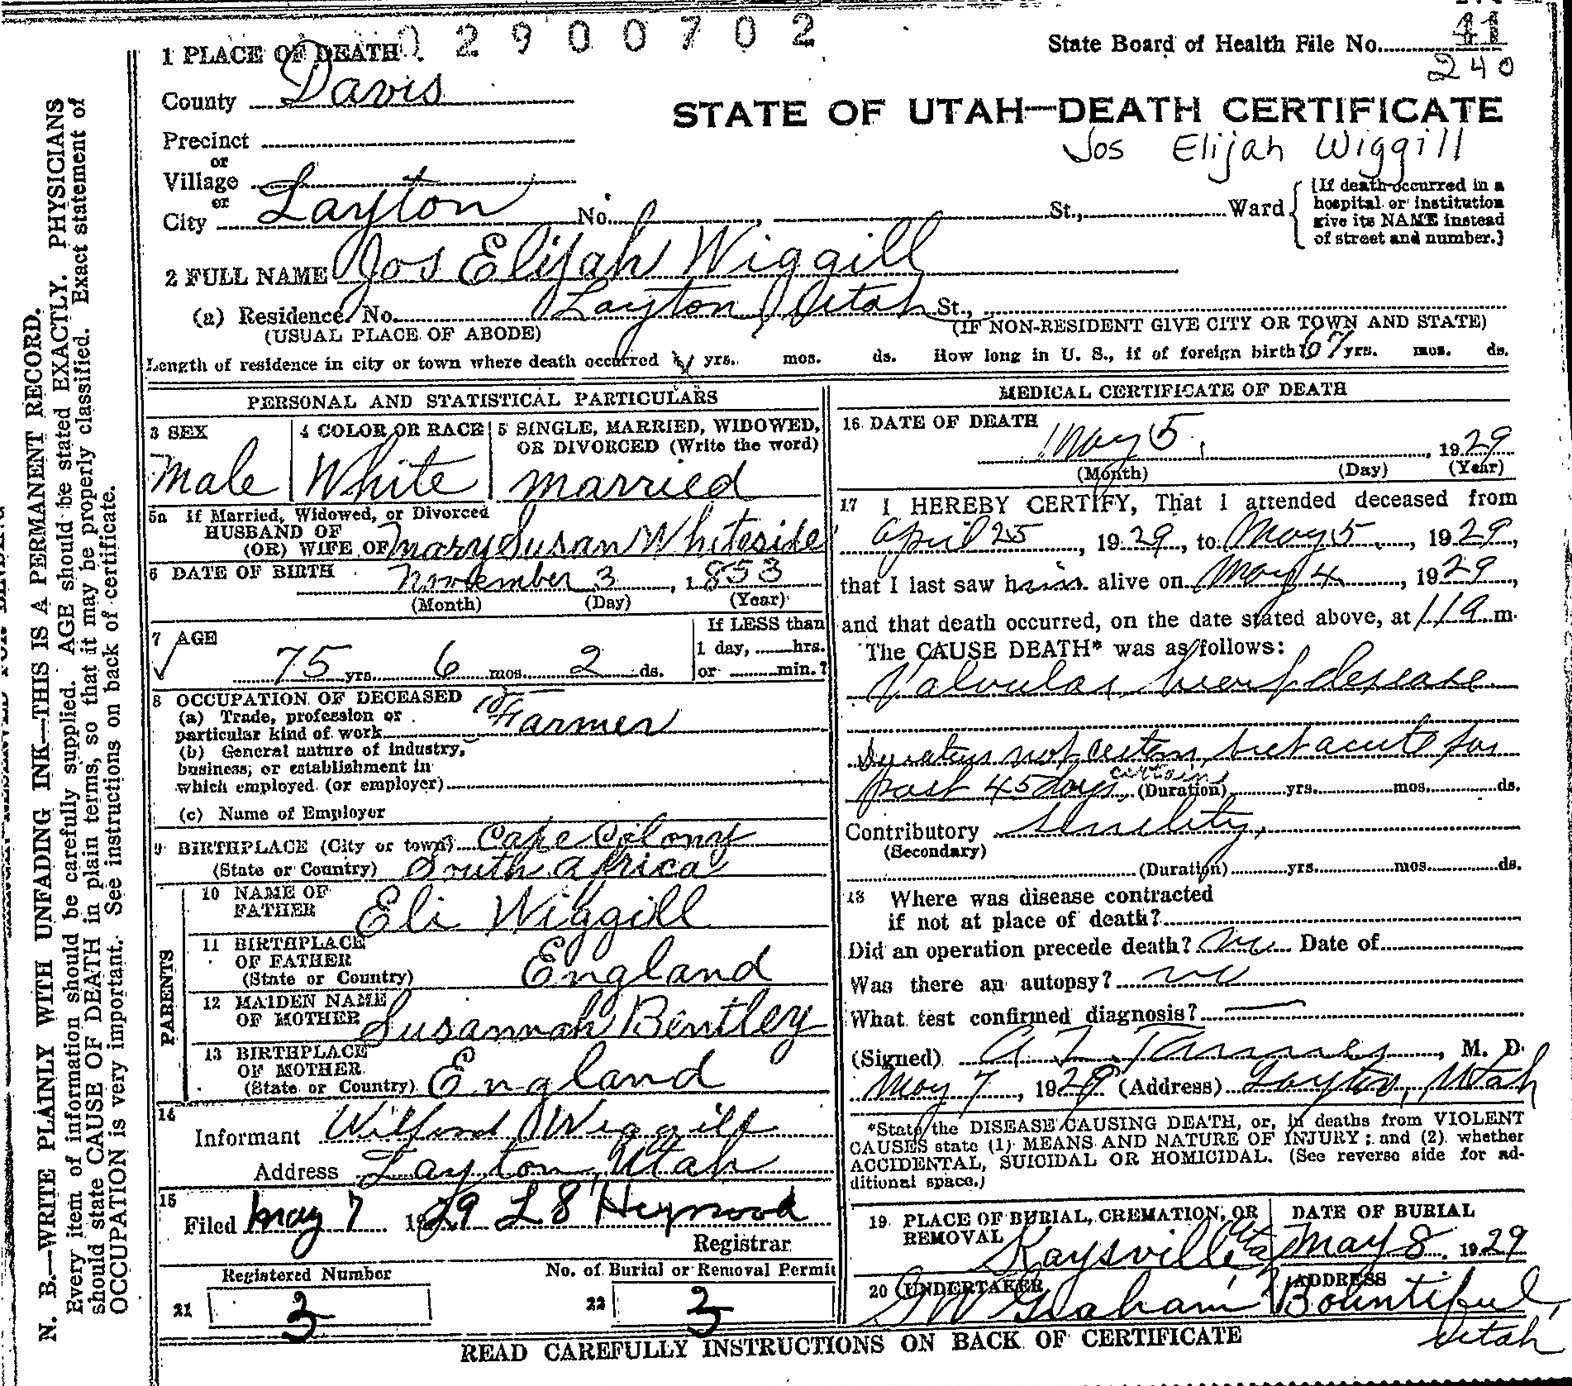 02900702
State Board of Health File No. 41
240
1 PLACE OF DEATH
County Davis
STATE OF UTAH—DEATH CERTIFICATE
Jos Elijah Wiggill
Precinct
or
Village
or
City Layton No. , St., Ward
{If death occurred in a
hospital or institution
give its NAME instead
of street and number.}
2 FULL NAME Jos Elijah Wiggill
(a) Residence. No. Layton, Utah St.,
(USUAL PLACE OF ABODE) (IF NON-RESIDENT GIVE CITY OR TOWN AND STATE)
Length of residence in city or town where death occurred yrs. mos. ds. How long in U. S., if of foreign birth 67 yrs. mos. ds.
PERSONAL AND STATISTICAL PARTICULARS
3 SEX 4 COLOR OR RACE 5 SINGLE, MARRIED, WIDOWED,
OR DIVORCED (Write the word)
Male White married
5a If Married, Widowed, or Divorced
HUSBAND OF
(OR) WIFE OF Mary Susan Whiteside
6 DATE OF BIRTH November 3, 1853
(Month) (Day) (Year)
7 AGE If LESS than
1 day, hrs.
75 yrs. 6 mos. 2 ds. or min.?
8 OCCUPATION OF DECEASED
(a) Trade, profession or
particular kind of work Farmer
(b) General nature of industry,
business, or establishment in
which employed (or employer)
(c) Name of Employer
9 BIRTHPLACE (City or town) Cape Colony
(State or Country) South Africa
PARENTS
10 NAME OF
FATHER Eli Wiggill
11 BIRTHPLACE
OF FATHER
(State or Country) England
12 MAIDEN NAME
OF MOTHER Susannah Bentley
13 BIRTHPLACE
OF MOTHER
(State or Country) England
14
Informant Wilford Wiggill
Address Layton, Utah
15
Filed May 7 1929 L S Heywood
Registrar
Registered Number No. of Burial or Removal Permit
21 3 22 3
MEDICAL CERTIFICATE OF DEATH
16 DATE OF DEATH
May 5, 1929
(Month) (Day) (Year)
17 I HEREBY CERTIFY, That I attended deceased from
April 25, 1929, to May 5, 1929,
that I last saw him alive on May 4, 1929,
and that death occurred, on the date stated above, at m.
The CAUSE DEATH* was as follows:
Valvular heart desease
but acute for
past 45 days certain (Duration) yrs. mos. ds.
Contributory Senility,
(Secondary)
(Duration) yrs. mos. ds.
18 Where was disease contracted
if not at place of death?
Did an operation precede death? no Date of
Was there an autopsy? no
What test confirmed diagnosis? —
(Signed) , M. D.
May 7, 1929 (Address) Layton, Utah
*State the DISEASE CAUSING DEATH, or, in deaths from VIOLENT
CAUSES state (1) MEANS AND NATURE OF INJURY; and (2) whether
ACCIDENTAL, SUICIDAL OR HOMICIDAL. (See reverse side for ad-
ditional space.)
19 PLACE OF BURIAL, CREMATION, OR
REMOVAL Kaysville Uta
DATE OF BURIAL
May 8, 1929
20 UNDERTAKER ADDRESS
G W Graham Bountiful,
Utah
READ CAREFULLY INSTRUCTIONS ON BACK OF CERTIFICATE
N. B.—WRITE PLAINLY WITH UNFADING INK—THIS IS A PERMANENT RECORD.
Every item of information should be carefully supplied. AGE should be stated EXACTLY. PHYSICIANS
should state CAUSE OF DEATH in plain terms, so that it may be properly classified. Exact statement of
OCCUPATION is very important. See instructions on back of certificate.